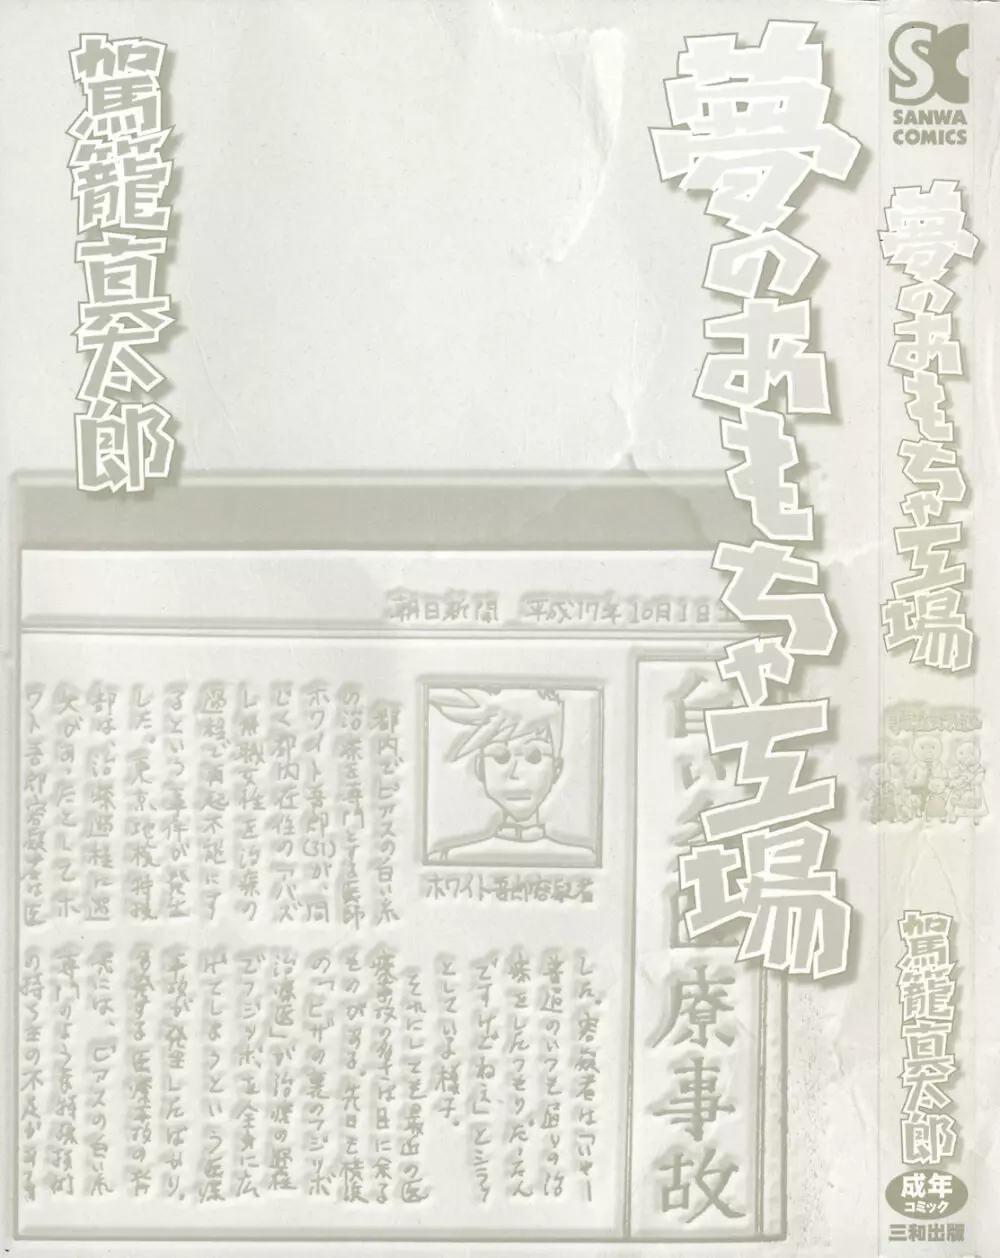 夢のおもちゃ工場
駕籠真太郎
SC
SANWA
COMICS
夢のおもちゃ工場
駕籠真太郎
成年
コミック
三和出版
朝日新聞 平成17年10月1日
医療事故
ホワイト吾郎容疑者
都内でピアスの白い糸
の治療を専門とする医師
ホワイト吾郎(31)が、同
じく都内在住の
し無職女性を治療の
過程で再起不能にす
るという事件が発生
した。東京地検特捜
部は、治療過程に過
失があったとしてホ
ワイト吾郎容疑者は医
した。容疑者は「いやー
普通のいつも通りの治
療をしたつもりだったん
ですけどねえ」と
としている様子。
それにしても最近の医
療事故の多さは日に余る
ものがある。先日も横浜
の「ヒザの裏のフジツボ
治療医」が治療の過程
でフジツボを全身に広
げてしまうという医療
事故が発生したばかり。